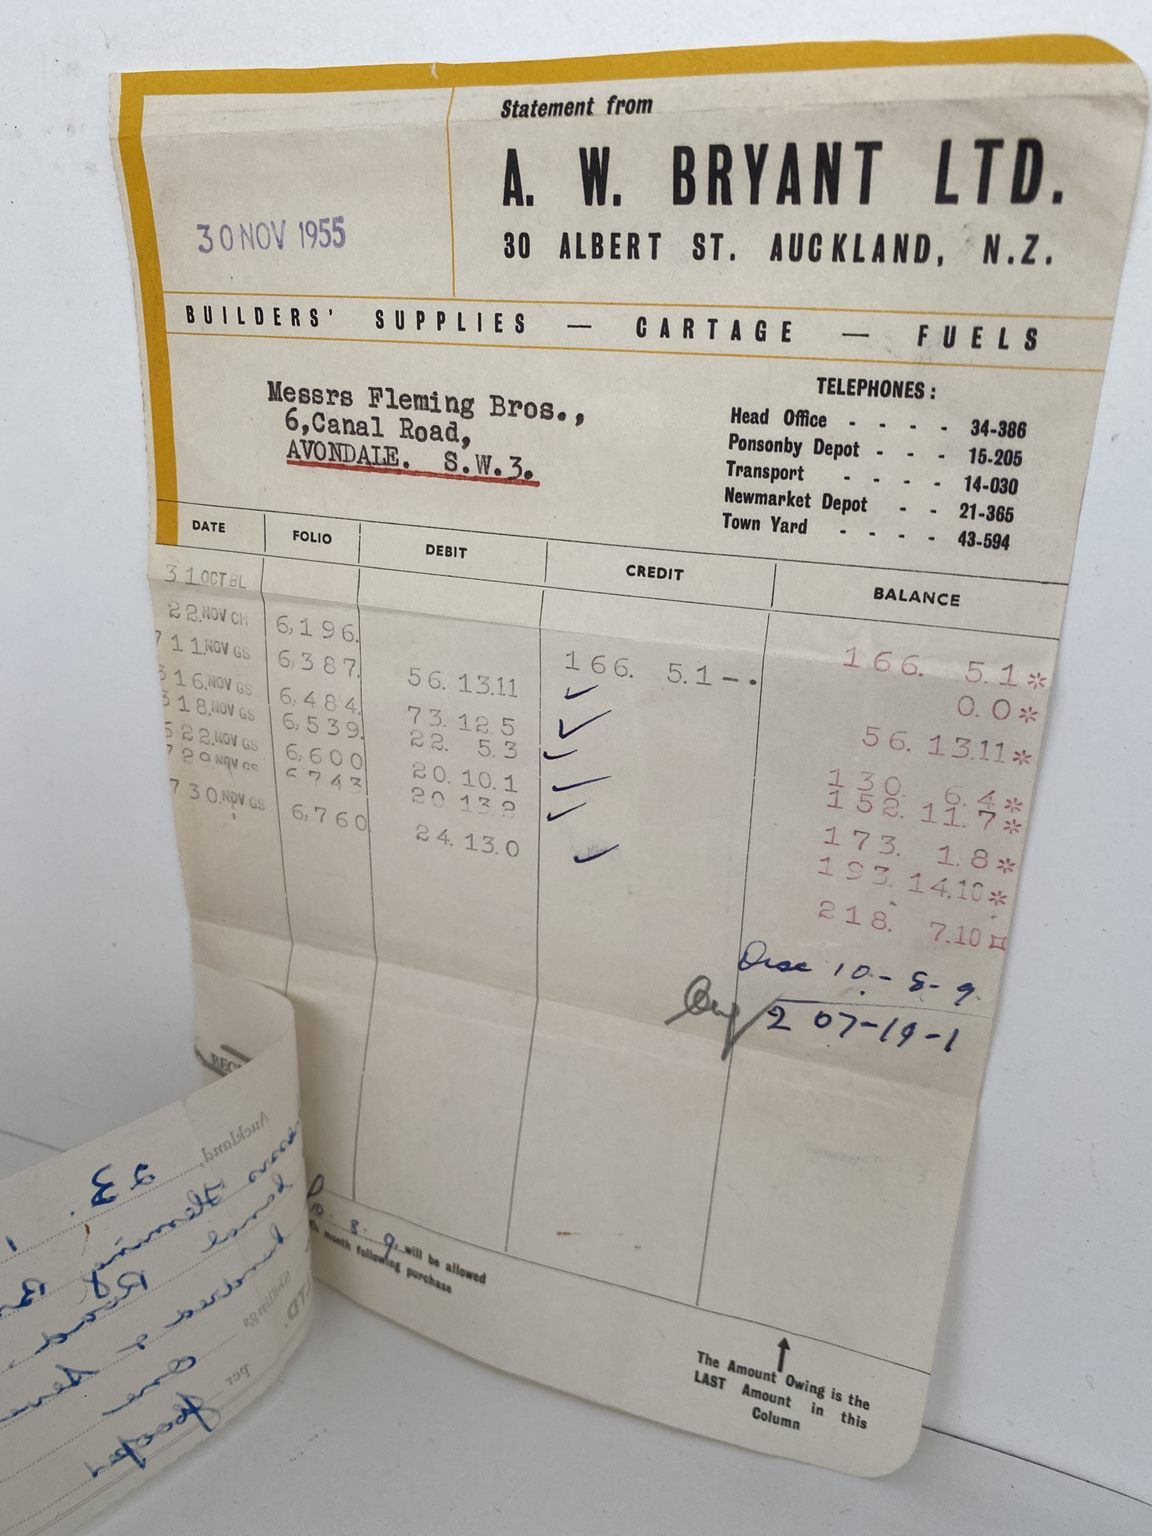 Statement from
A. W. BRYANT LTD.
30 ALBERT ST. AUCKLAND, N.Z.
30 NOV 1955
BUILDERS' SUPPLIES — CARTAGE — FUELS
Messrs Fleming Bros.,
6, Canal Road,
AVONDALE. S.W.3.
TELEPHONES:
Head Office - - - - 34-386
Ponsonby Depot - - - 15-205
Transport - - - - 14-030
Newmarket Depot - - 21-365
Town Yard - - - - 43-594
DATE FOLIO DEBIT CREDIT BALANCE
31 OCT BL 166. 5.1*
22. NOV CH 6,196. 166. 5.1-. 0.0*
11. NOV GS 6,387. 56.13.11 56.13.11*
16. NOV GS 6,484. 73.12.5 130. 6.4*
18. NOV GS 6,539. 22. 5.3 152.11.7*
22. NOV GS 6,600 20.10.1 173. 1.8*
29. NOV GS 6743 20.13.2 193.14.10*
30. NOV GS 6,760 24.13.0 218. 7.10
Disc 10-8-9
207-19-1
10-8-9. will be allowed
month following purchase
The Amount Owing is the
LAST Amount in this
Column
Auckland,
23.
Fleming
Road
hundred &
Shillings
LTD.
One
per